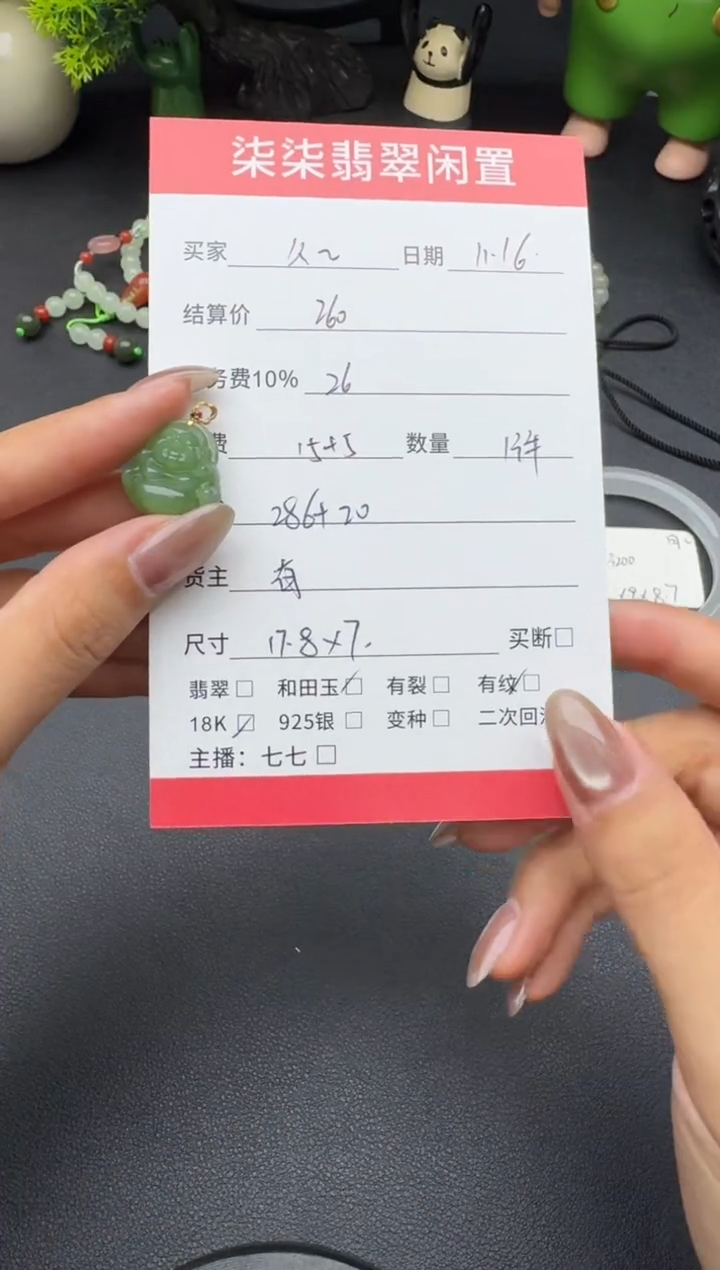 柒柒翡翠闲置
买家 久~ 日期 11.16.
结算价 260
务费10% 26
费 15+5 数量 1件
286+20
货主 有
尺寸 17.8×7. 买断□
翡翠□ 和田玉☑ 有裂□ 有纹□
18K☑ 925银□ 变种□ 二次回
主播：七七□